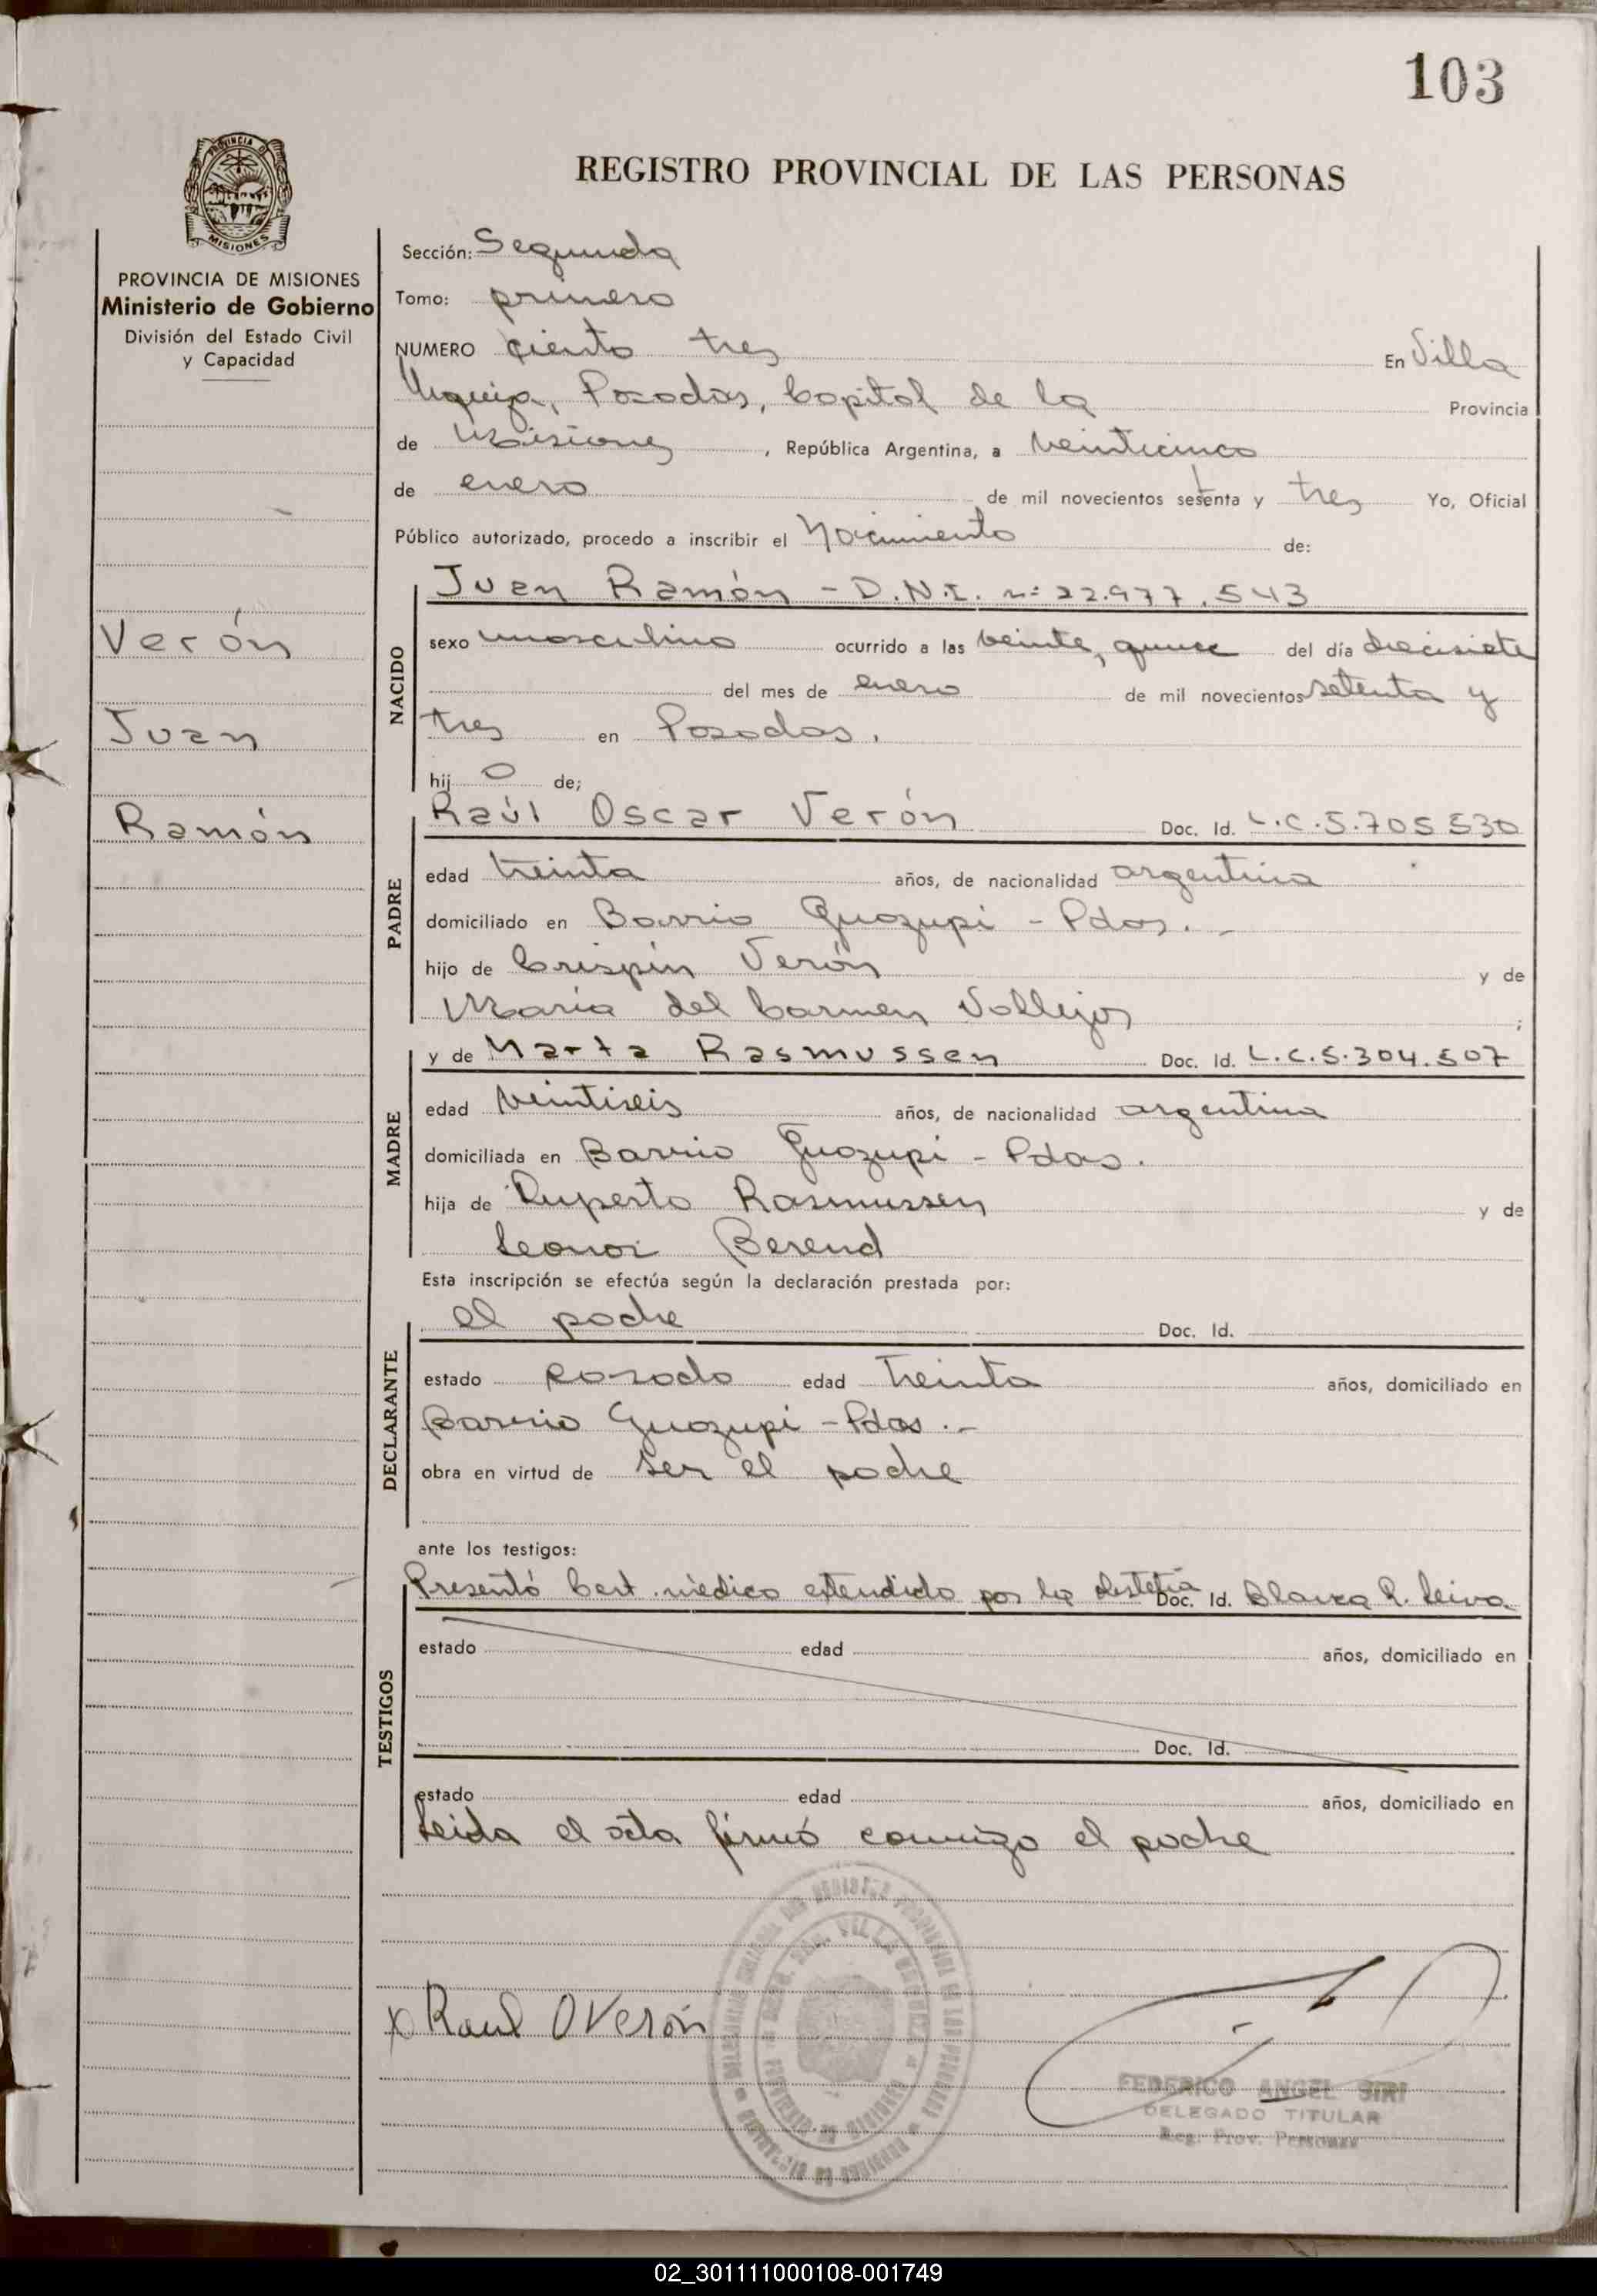 103
REGISTRO PROVINCIAL DE LAS PERSONAS
PROVINCIA DE MISIONES
Ministerio de Gobierno
División del Estado Civil
y Capacidad
Verón
Juan
Ramón
Sección: Segunda
Tomo: primero
NUMERO ciento tres En Villa
Urquiza, Posadas, Capital de la Provincia
de Misiones, República Argentina, a veinticinco
de enero de mil novecientos setenta y tres Yo, Oficial
Público autorizado, procedo a inscribir el Nacimiento de:
NACIDO
Juan Ramón - D.N.I. nº 22.977.543
sexo masculino ocurrido a las veinte, quince del día diecisiete
del mes de enero de mil novecientos setenta y
tres en Posadas.
hijo de;
PADRE
Raúl Oscar Verón Doc. Id. L.C.5.705530
edad treinta años, de nacionalidad argentina
domiciliado en Barrio Guazupi - Pdas. -
hijo de Crispín Verón y de
María del Carmen Vallejos ;
MADRE
y de Marta Rasmussen Doc. Id. L.C.5.304.507
edad veintiseis años, de nacionalidad argentina
domiciliada en Barrio Guazupi - Pdas.
hija de Ruperto Rasmussen y de
Leonor Berend
Esta inscripción se efectúa según la declaración prestada por:
DECLARANTE
el padre Doc. Id.
estado casado edad treinta años, domiciliado en
Barrio Guazupi - Pdas. -
obra en virtud de ser el padre
ante los testigos:
TESTIGOS
Presentó Cert. médico extendido por la obstetra Doc. Id. Blanca R. Leiva
estado edad años, domiciliado en
Doc. Id.
estado edad años, domiciliado en
Leida el acta firmó conmigo el padre
x Raul O Verón
FEDERICO ANGEL SIRI
DELEGADO TITULAR
Reg. Prov. Personas
02_301111000108-001749